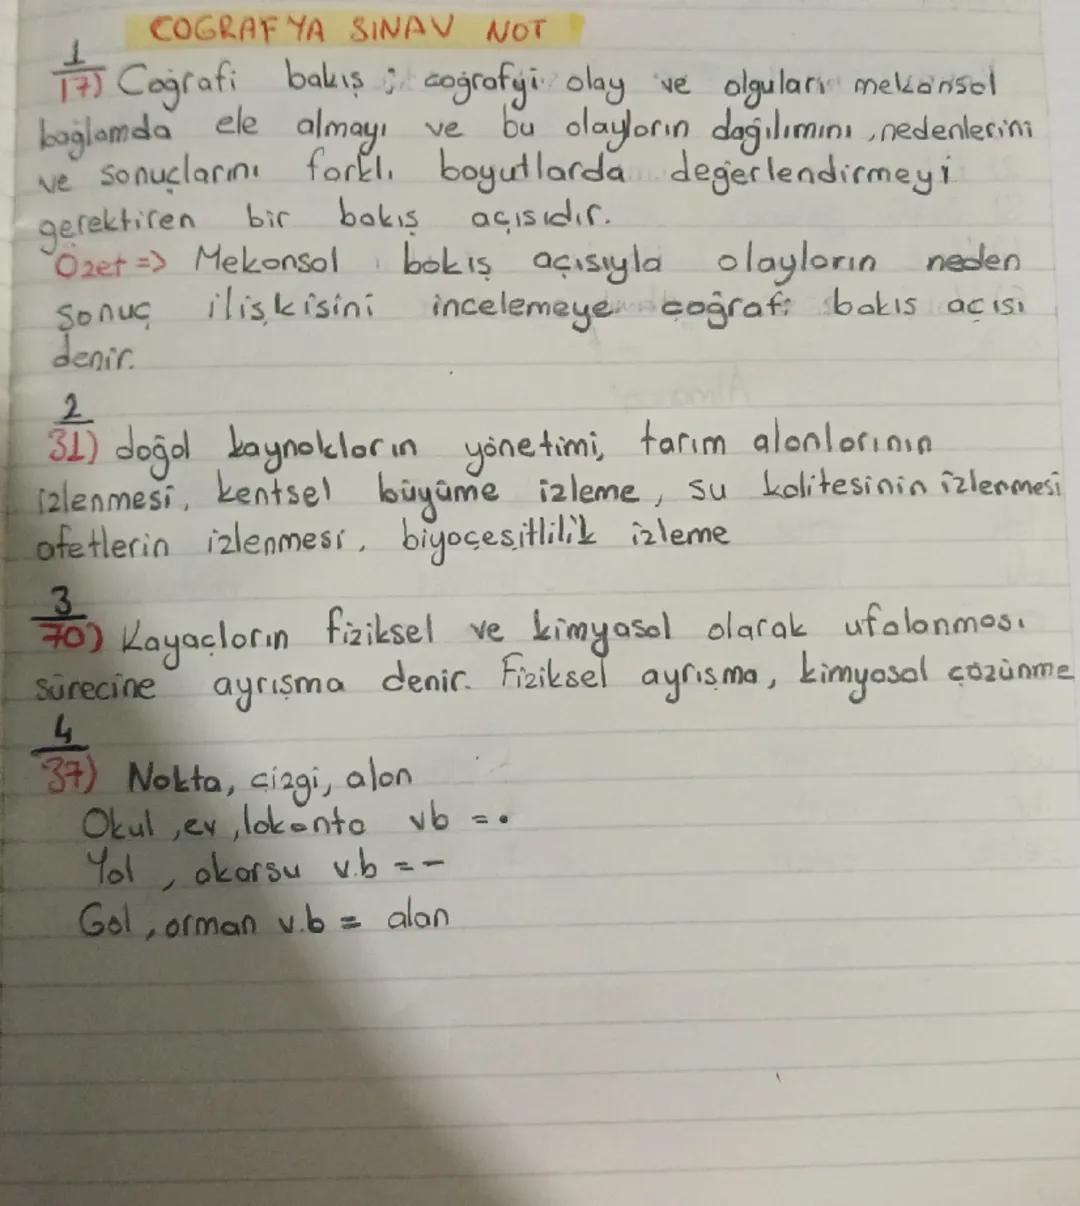 COGRAFYA SINAV NOT
1
17) Coğrafi bakış ; coğrafyi olay ve olguları mekansal
bağlamda ele almayı ve bu olayların dağılımını, nedenlerini
ve sonuçlarını farklı boyutlarda değerlendirmeyi
gerektiren bir bakış açısıdır.
Özet => Mekansal bakış açısıyla olayların neden
sonuç ilişkisini incelemeye coğrafi bakış açısı
denir.
2
31) doğal kaynakların yönetimi, tarım alanlarının
izlenmesi, kentsel büyüme izleme, su kalitesinin izlenmesi
afetlerin izlenmesi, biyoçeşitlilik izleme
3
70) Kayaçların fiziksel ve kimyasal olarak ufalanması
sürecine ayrışma denir. Fiziksel ayrışma, kimyasal çözünme
4
37) Nokta, çizgi, alan
Okul, ev, lokanta vb = •
Yol, akarsu v.b = -
Göl, orman v.b = alan